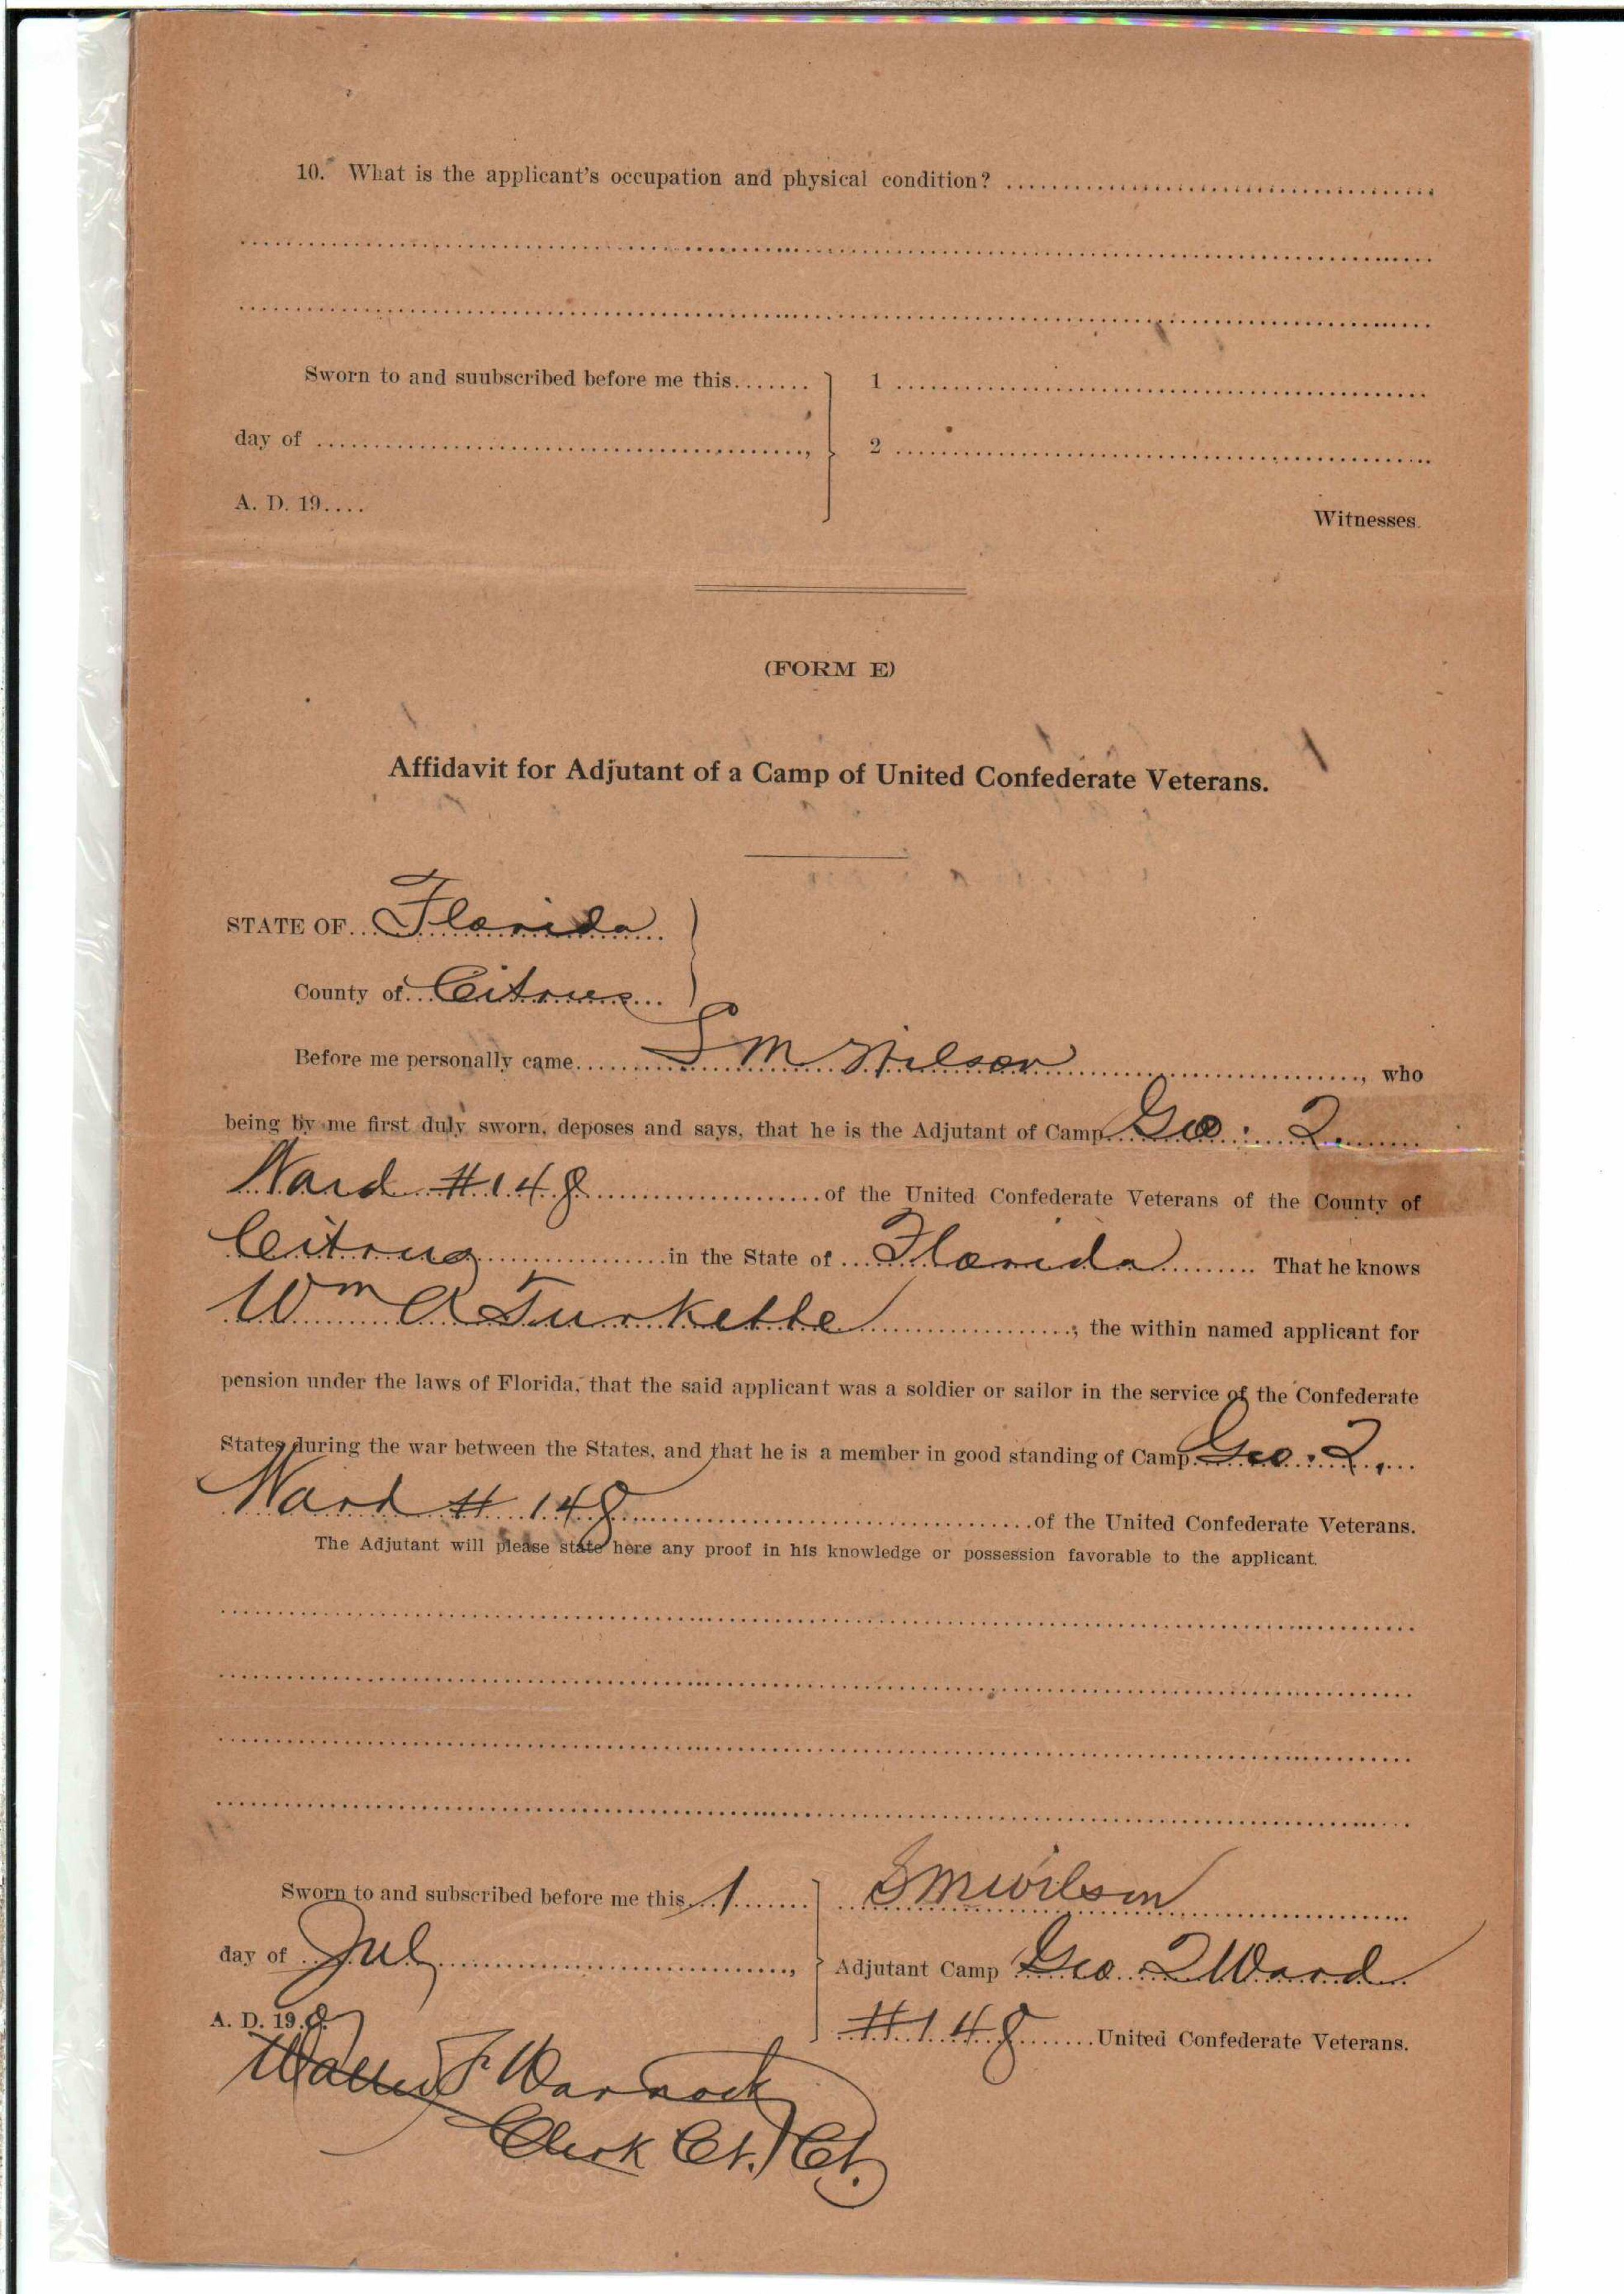 10. What is the applicant's occupation and physical condition?
Sworn to and suubscribed before me this....... 1
day of ......, 2
A. D. 19....
Witnesses.
(FORM E)
Affidavit for Adjutant of a Camp of United Confederate Veterans.
STATE OF Florida
County of Citrus
Before me personally came S M Wilson, who
being by me first duly sworn, deposes and says, that he is the Adjutant of Camp Geo. T
Ward #148 of the United Confederate Veterans of the County of
Citrus in the State of Florida That he knows
Wm A Turkette; the within named applicant for
pension under the laws of Florida, that the said applicant was a soldier or sailor in the service of the Confederate
States during the war between the States, and that he is a member in good standing of Camp Geo. T.
Ward # 148 of the United Confederate Veterans.
The Adjutant will please state here any proof in his knowledge or possession favorable to the applicant.
Sworn to and subscribed before me this 1 S M Wilson
day of July, Adjutant Camp Geo T Ward
A. D. 19
#148 United Confederate Veterans.
Walter F Warnock
Clerk Ct. Ct.